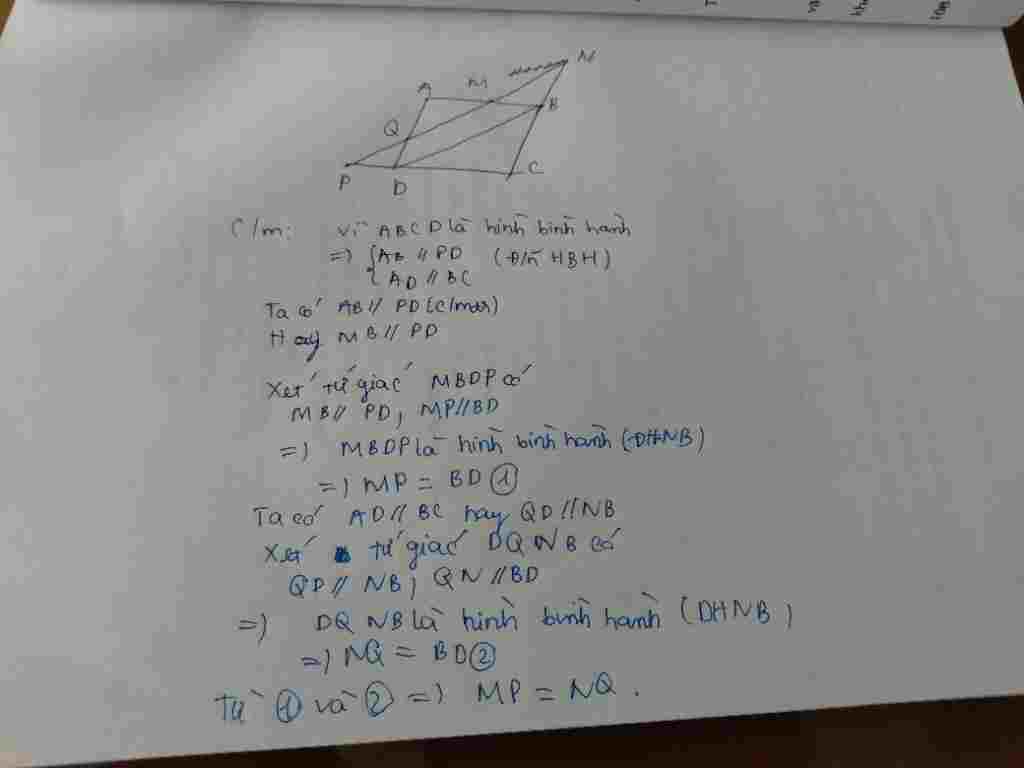 N
A
M
B
Q
P
D
C
C/m: Vì ABCD là hình bình hành
=> { AB // PD (Đ/n HBH)
AD // BC
Ta có AB // PD (c/mtr)
Hay MB // PD
Xét tứ giác MBDP có
MB // PD, MP // BD
=> MBDP là hình bình hành (DHNB)
=> MP = BD ①
Ta có AD // BC hay QD // NB
Xét tứ giác DQNB có
QD // NB, QN // BD
=> DQNB là hình bình hành (DHNB)
=> NQ = BD ②
Từ ① và ② => MP = NQ.